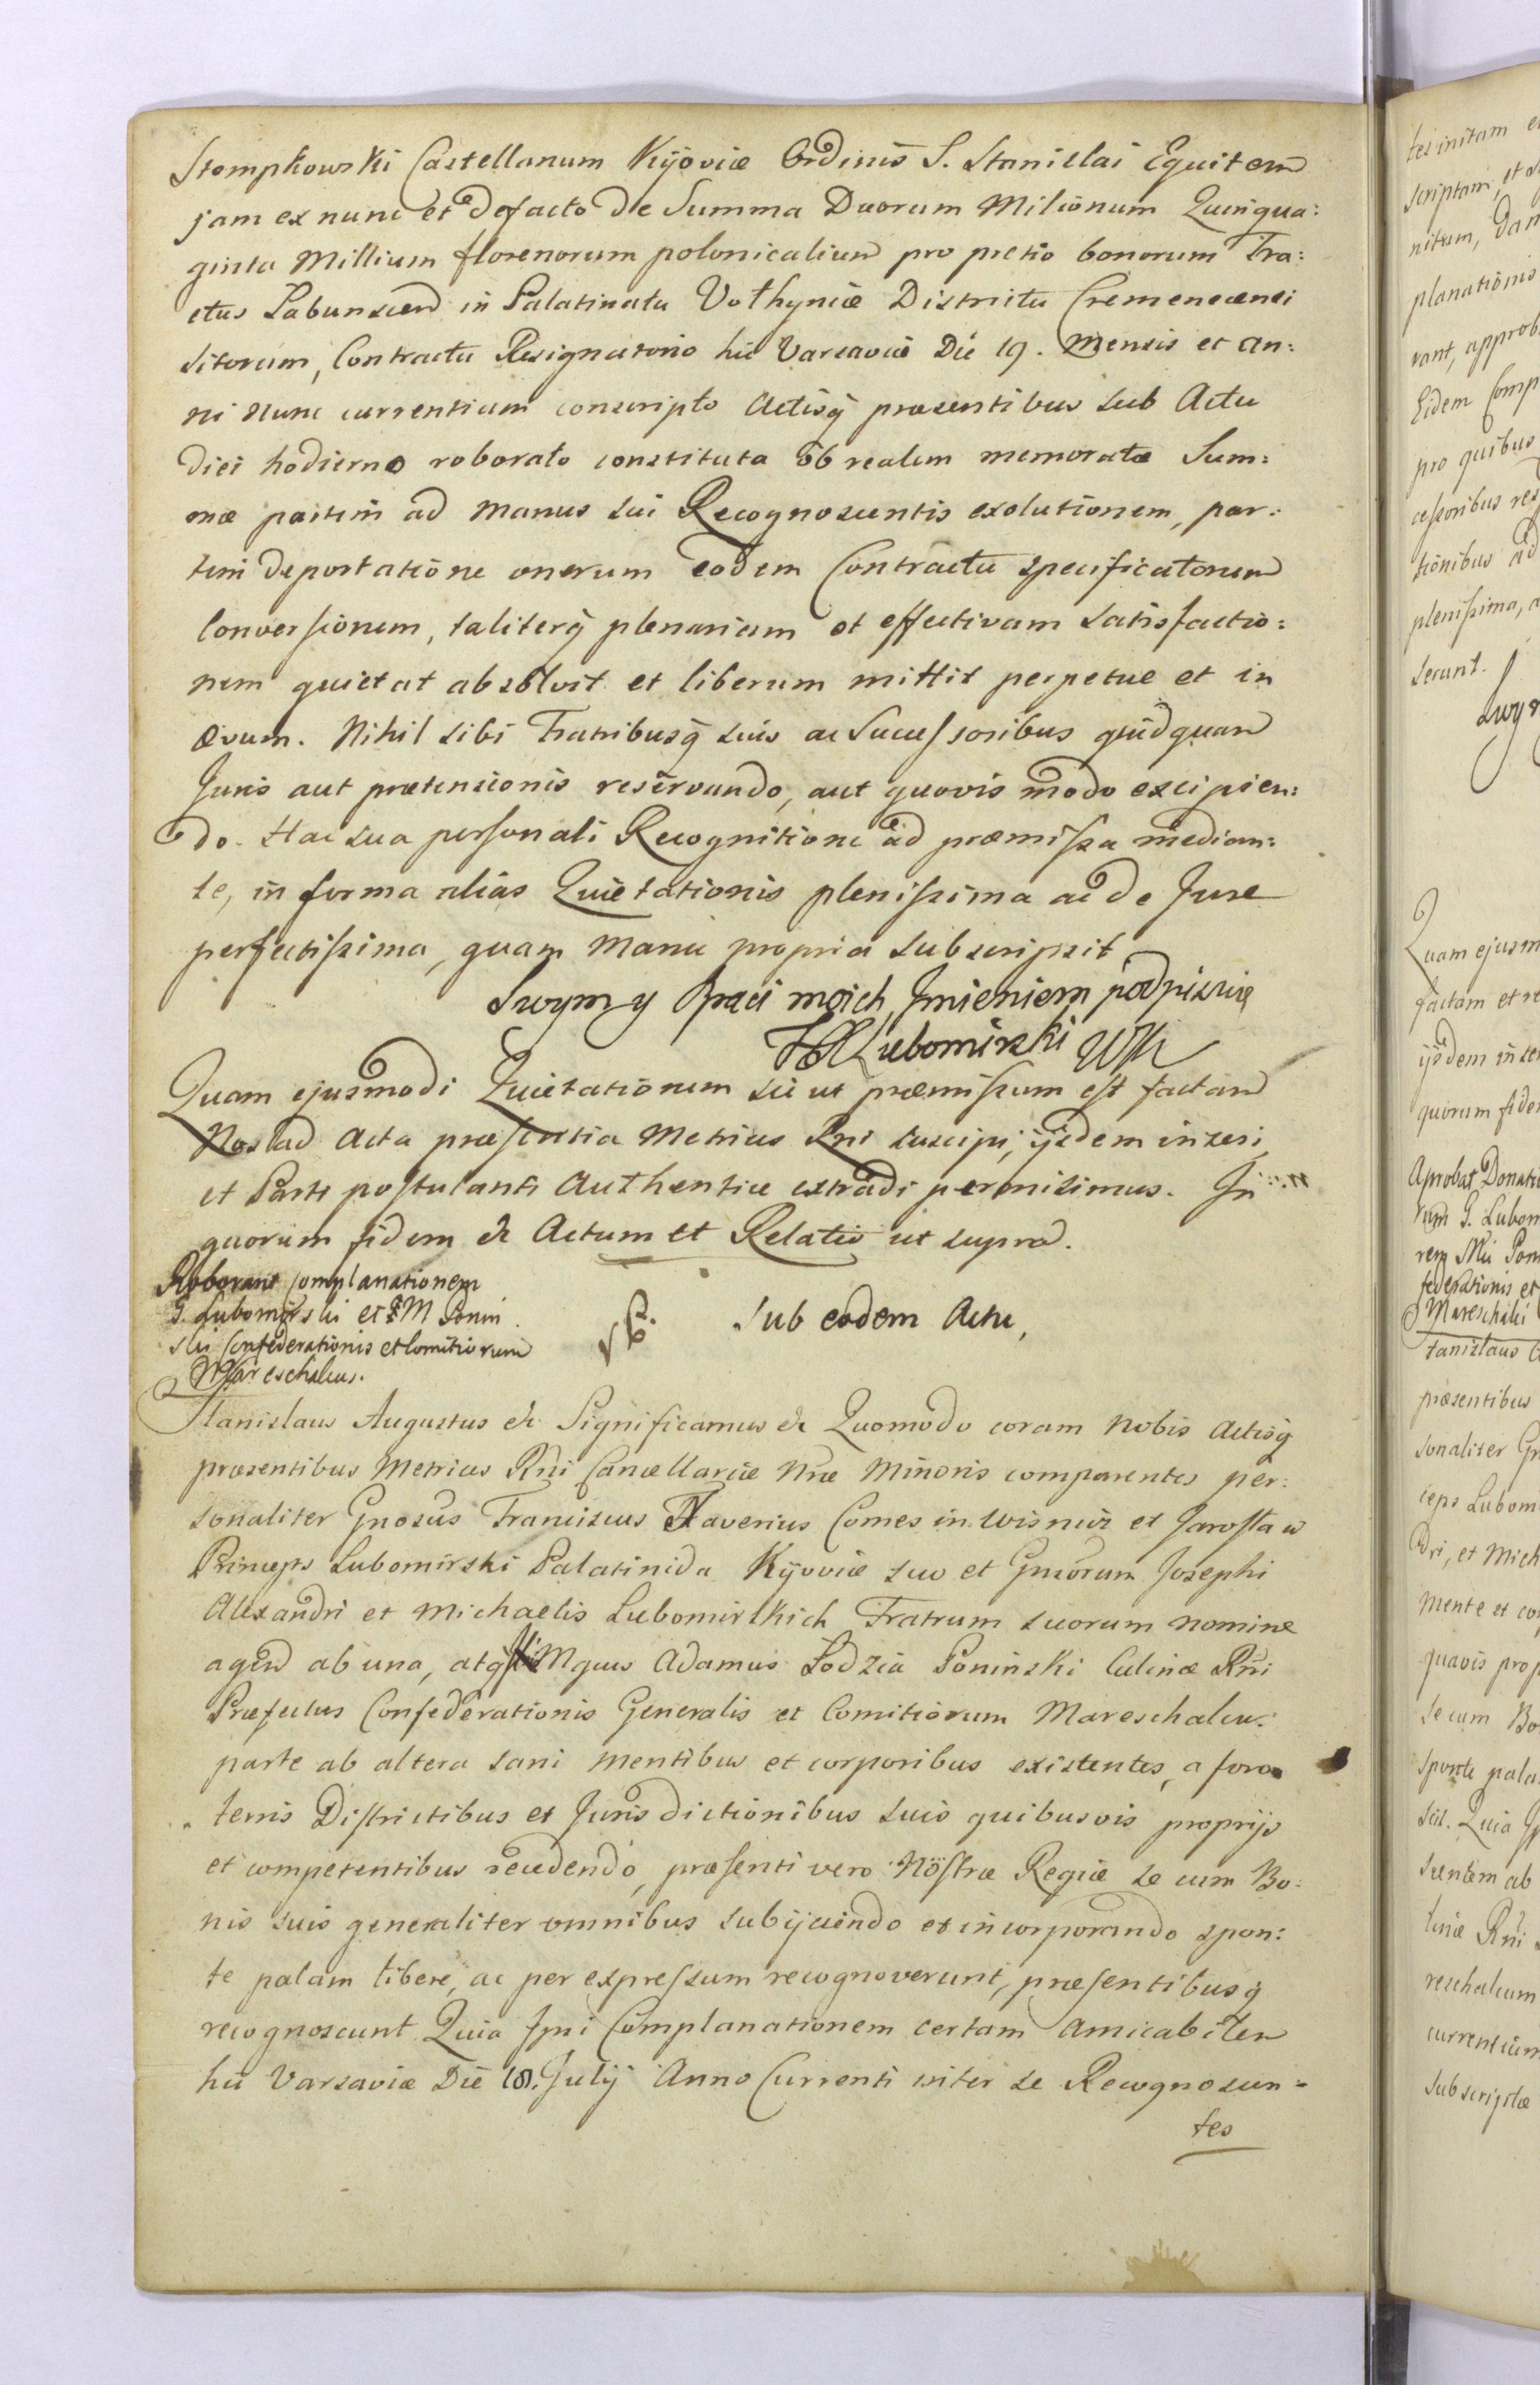 Stempkowski Castellanum Kijoviæ Ordinis S. Stanislai Equitem
jam ex nunc et defacto de Summa Duorum Milionum Quinqua:
ginta Millium florenorum polonicalium pro pretio bonorum Tra:
ctus Łabunscen in Palatinatu Volhyniæ Districtu Cremenecensi
sitorum, Contractu Resignatorio hic Varsaviæ Die 19. Mensis et an:
ni nunc currentium conscripto Actisq̃ præsentibus sub Actu
diei hodierno roborato constituta ob realem memoratæ Sum:
mæ partim ad manus sui Recognoscentis exolutionem, par:
tim deportatione onerum eodem Contractu specificatorum
Conversionem, taliterq̃ plenariam et effectivam satisfactio:
nem quietat absolvit et liberum mittit perpetue et in
ævum. Nihil sibi Fratribusq̃ suis ac Successoribus quidquam
Juris aut prætensionis reservando, aut quovis modo excipien:
do. Hac sua personali Recognitione ad præmissa median:
te, in forma alias Quietationis plenissima ac de Jure
perfectissima, quam Manu propria subscripsit
Swym y Braci moich Jmieniem podpisuię
FX Lubomirski WK
Quam ejusmodi Quietationem sic ut præmissum est factam
Nos ad Acta præsentia Metrices Rni suscipi, ijsdem inseri
et Parti postulanti Authentice extradi permisimus. In
quorum fidem &c Actum et Relatio ut supra.
Roborant complanationem
G. Lubomirski et M Ponin
ski Confederationis et Comitiorum
Mareschalcus.
Sub eodem Actu,
Stanislaus Augustus &c Significamus &c Quomodo coram Nobis Actisq̃
præsentibus Metrices Rni Cancellariæ Nræ Minoris comparentes per:
sonaliter Gnosus Franciscus Xaverius Comes in Wisnicz et Jarosław
Princeps Lubomirski Palatinida Kijoviæ suo et Gnosorum Josephi
Alexandri et Michaelis Lubomirskich Fratrum suorum nomine
agen ab una, atq̃ Mgcus Adamus Łodzia Poninski Culinæ Rni
Præfectus Confederationis Generalis et Comitiorum Mareschalcus
parte ab altera sani mentibus et corporibus existentes, a foro
terris Districtibus et Jurisdictionibus suis quibusvis proprijs
et competentibus recedendo, præsenti vero Nostræ Regiæ se cum Bo:
nis suis generaliter omnibus subijciendo et incorporando spon:
te palam libere, ac per expressum recognoverunt, præsentibusq̃
recognoscunt Quia Ipsi Complanationem certam amicabiter
hic Varsaviæ Die 18. Julij Anno Currenti inter se Recognoscen=
tes